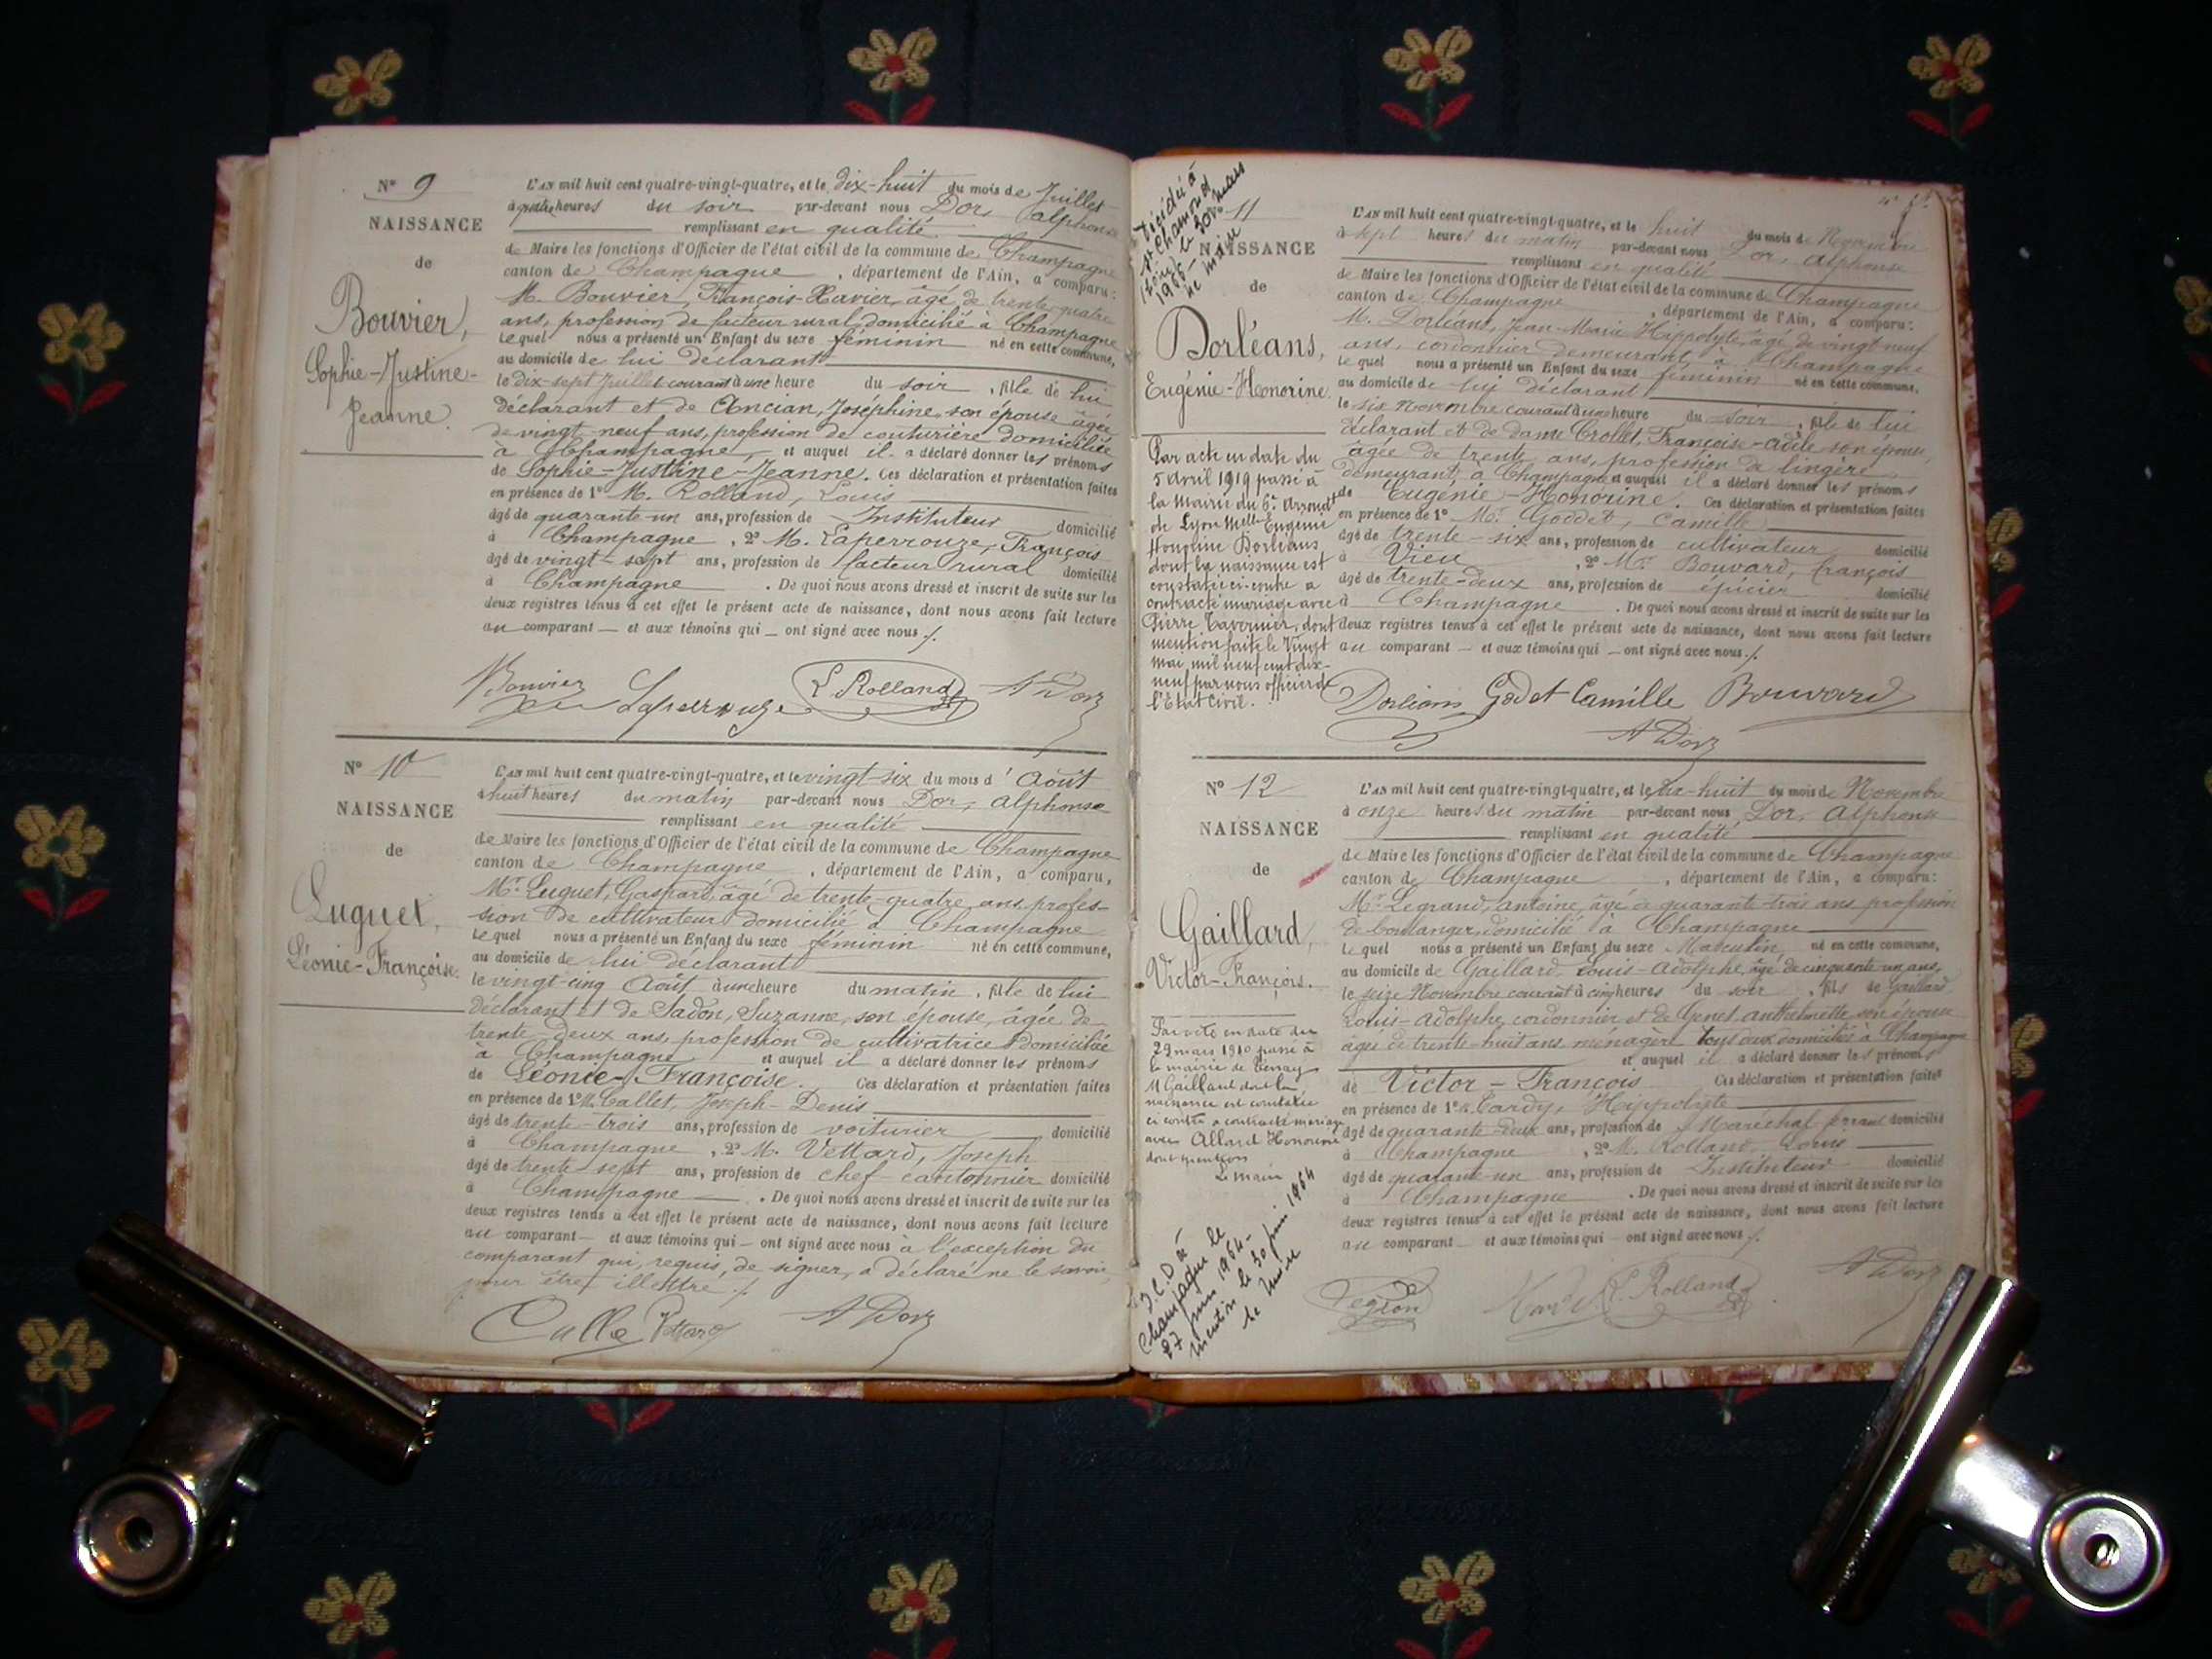 N° 9
NAISSANCE
de
Bouvier,
Sophie-Justine-
Jeanne.
L'an mil huit cent quatre-vingt-quatre, et le dix-huit du mois de Juillet
à quatre heures du soir par-devant nous Dor, Alphonse
remplissant en qualité
de Maire les fonctions d'Officier de l'état civil de la commune de Champagne
canton de Champagne, département de l'Ain, a comparu:
M. Bouvier, François-Xavier, âgé de trente-quatre
ans, profession de facteur rural domicilié à Champagne
Lequel nous a présenté un Enfant du sexe féminin né en cette commune,
au domicile de lui déclarant
le dix-sept Juillet courant à une heure du soir, fille de lui
déclarant et de Ancian, Joséphine, son épouse âgée
de vingt-neuf ans, profession de couturière domiciliée
à Champagne, et auquel il a déclaré donner les prénoms
de Sophie-Justine-Jeanne. Ces déclaration et présentation faites
en présence de 1° M. Rolland, Louis
âgé de quarante-un ans, profession de Instituteur domicilié
à Champagne, 2° M. Laperrouze, François
âgé de vingt-sept ans, profession de facteur rural domicilié
à Champagne. De quoi nous avons dressé et inscrit de suite sur les
deux registres tenus à cet effet le présent acte de naissance, dont nous avons fait lecture
au comparant — et aux témoins qui — ont signé avec nous ./.
Bouvier Laperrouze L. Rolland A Dor
N° 10
NAISSANCE
de
Luguet,
Léonie-Françoise.
L'an mil huit cent quatre-vingt-quatre, et le vingt-six du mois d'Août
à huit heures du matin par-devant nous Dor, Alphonse
remplissant en qualité
de Maire les fonctions d'Officier de l'état civil de la commune de Champagne
canton de Champagne, département de l'Ain, a comparu,
Mr. Luguet, Gaspard, âgé de trente-quatre ans, profes-
sion de cultivateur domicilié à Champagne
Lequel nous a présenté un Enfant du sexe féminin né en cette commune,
au domicile de lui déclarant
le vingt-cinq Août à une heure du matin, fille de lui
déclarant et de Sadon, Suzanne, son épouse, âgée de
trente-deux ans, profession de cultivatrice domiciliée
à Champagne et auquel il a déclaré donner les prénoms
de Léonie-Françoise. Ces déclaration et présentation faites
en présence de 1° M. Callet, Joseph-Denis
âgé de trente-trois ans, profession de voiturier domicilié
à Champagne, 2° M. Vettard, Joseph
âgé de trente-sept ans, profession de chef-cantonnier domicilié
à Champagne. De quoi nous avons dressé et inscrit de suite sur les
deux registres tenus à cet effet le présent acte de naissance, dont nous avons fait lecture
au comparant — et aux témoins qui — ont signé avec nous à l'exception du
comparant qui, requis, de signer, a déclaré ne le savoir
pour être illettré ./.
Calle Vettard A Dor
Décédée à
St Chamond
(Loire) le 30 mars
1965
Le Maire
11
NAISSANCE
de
Dorléans,
Eugénie-Honorine.
Par acte en date du
5 Avril 1919 passé à
la Mairie du 6e Arrondt
de Lyon Melle Eugénie
Honorine Dorléans
dont la naissance est
constatée ci-contre a
contracté mariage avec
Pierre Tavernier, dont
mention faite le Vingt
mai mil neuf cent dix-
neuf par nous officier de
l'Etat Civil.
L'an mil huit cent quatre-vingt-quatre, et le huit du mois de Novembre
à sept heures du matin par-devant nous Dor, Alphonse
remplissant en qualité
de Maire les fonctions d'Officier de l'état civil de la commune de Champagne
canton de Champagne, département de l'Ain, a comparu:
M. Dorléans, Jean-Marie Hippolyte, âgé de vingt-neuf
ans, cordonnier demeurant à Champagne
Lequel nous a présenté un Enfant du sexe féminin né en cette commune,
au domicile de lui déclarant
le six Novembre courant à une heure du soir, fille de lui
déclarant et de dame Crollet, Françoise-Adèle son épouse,
âgée de trente ans, profession de lingère
demeurant à Champagne et auquel il a déclaré donner les prénoms
de Eugénie-Honorine. Ces déclaration et présentation faites
en présence de 1° Mr. Goddet, Camille
âgé de trente-six ans, profession de cultivateur domicilié
à Vieu, 2° Mr. Bouvard, François
âgé de trente-deux ans, profession de épicier domicilié
à Champagne. De quoi nous avons dressé et inscrit de suite sur les
deux registres tenus à cet effet le présent acte de naissance, dont nous avons fait lecture
au comparant — et aux témoins qui — ont signé avec nous ./.
Dorléans Godet Camille Bouvard
A Dor
N° 12
NAISSANCE
de
Gaillard,
Victor-François.
Par acte en date du
29 mars 1910 passé à
la mairie de
M Gaillard dont la
naissance est constatée
ci contre a contracté mariage
avec Allard Honorine
dont mention
Le maire
D.C.D à
Champagne le
27 juin 1964 -
mention le 30 juin 1964
le Maire
L'an mil huit cent quatre-vingt-quatre, et le dix-huit du mois de Novembre
à onze heures du matin par-devant nous Dor, Alphonse
remplissant en qualité
de Maire les fonctions d'Officier de l'état civil de la commune de Champagne
canton de Champagne, département de l'Ain, a comparu:
Mr. Legrand, Antoine, âgé de quarante-trois ans profession
de boulanger, domicilié à Champagne
Lequel nous a présenté un Enfant du sexe Masculin, né en cette commune,
au domicile de Gaillard, Louis-Adolphe, âgé de cinquante un ans,
le seize Novembre courant à cinq heures du soir, fils de Gaillard
Louis-Adolphe, cordonnier et de Genet Anthelmette son épouse
âgée de trente-huit ans, ménagère tous deux domiciliés à Champagne
et auquel il a déclaré donner les prénoms
de Victor-François Ces déclaration et présentation faites
en présence de 1° M. Cardy, Hippolyte
âgé de quarante-deux ans, profession de Maréchal ferrant domicilié
à Champagne, 2° M. Rolland, Louis
âgé de quarante-un ans, profession de Instituteur domicilié
à Champagne. De quoi nous avons dressé et inscrit de suite sur les
deux registres tenus à cet effet le présent acte de naissance, dont nous avons fait lecture
au comparant — et aux témoins qui — ont signé avec nous ./.
L. Rolland A Dor